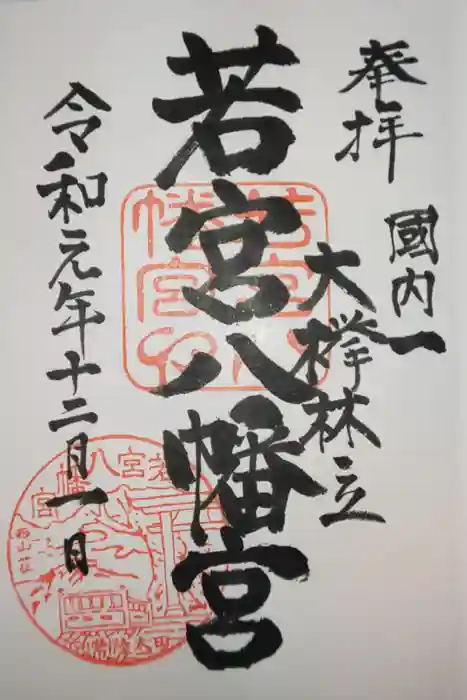 奉拝
國内一
大欅林立
若宮八幡宮
令和元年十二月一日
若宮八幡宮